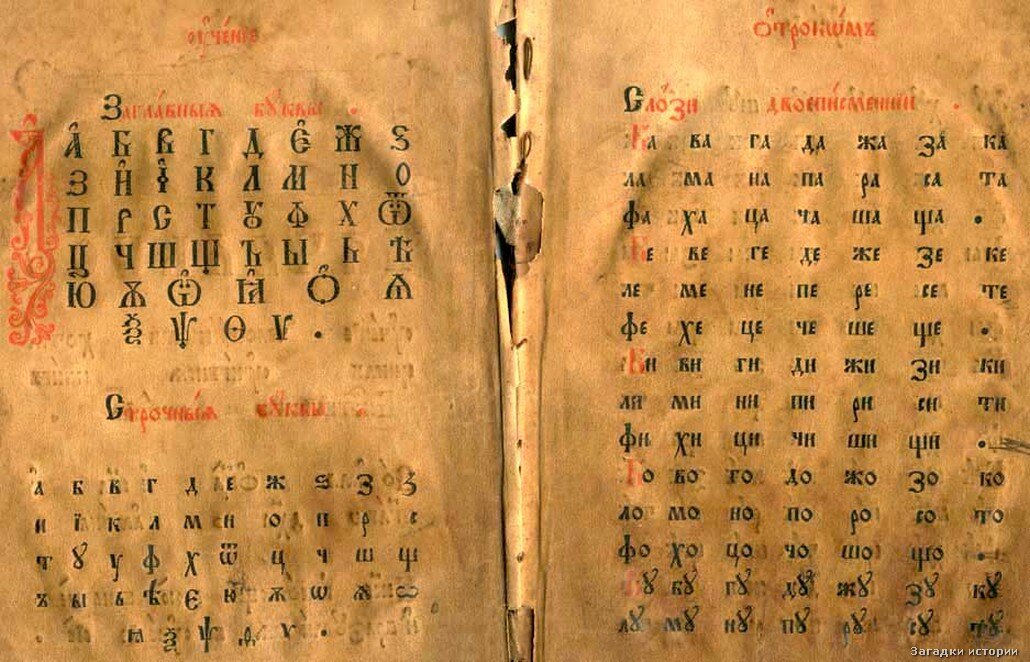 оуче́нїе
Загла́вныѧ бꙋквы .
А Б В Г Д Є Ж Ѕ
З И І К Л М Н О
П Р С Т Ꙋ Ф Х Ѿ
Ц Ч Ш Щ Ъ Ы Ь Ѣ
Ю Ѫ Ѽ Ꙗ Ѻ Ѧ
Ѯ Ѱ Ѳ Ѵ .
Стро́чныѧ бꙋквы
а б в г д е ж ѕ з
и ї к л м н о п р с
т ꙋ у ф х ѿ ц ч ш щ
ъ ы ь ѣ є ю ѫ ѡ ѧ
ꙗ ѯ ѱ ѳ ѵ .
О҆трокѡ́мъ
Сло́зи двоеписменнїи .
Ба ва га да жа за ка
ла ма на па ра са та
фа ха ца ча ша ща .
Бе ве ге де же зе ке
ле ме не пе ре се те
фе хе це че ше ще .
Би ви ги ди жи зи ки
ли ми ни пи ри си ти
фи хи ци чи ши щи .
Бо во го до жо зо ко
ло мо но по ро со то
фо хо цо чо шо що .
Бꙋ вꙋ гꙋ дꙋ жꙋ зꙋ кꙋ
лꙋ мꙋ нꙋ пꙋ рꙋ сꙋ тꙋ
Загадки истории